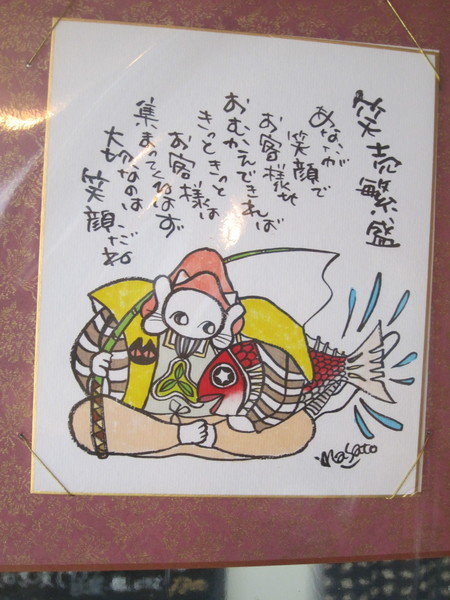 笑売繁盛
あなたが
笑顔で
お客様を
おむかえできれば
きっときっと
お客様は
集まってくるはず
大切なのは
笑顔だね
Masato